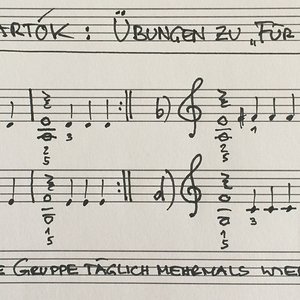 ARTÓK: ÜBUNGEN ZU „FÜR
3 b) 1
2 2
5 5
d) 3
1 1
5 5
E GRUPPE TÄGLICH MEHRMALS WIE